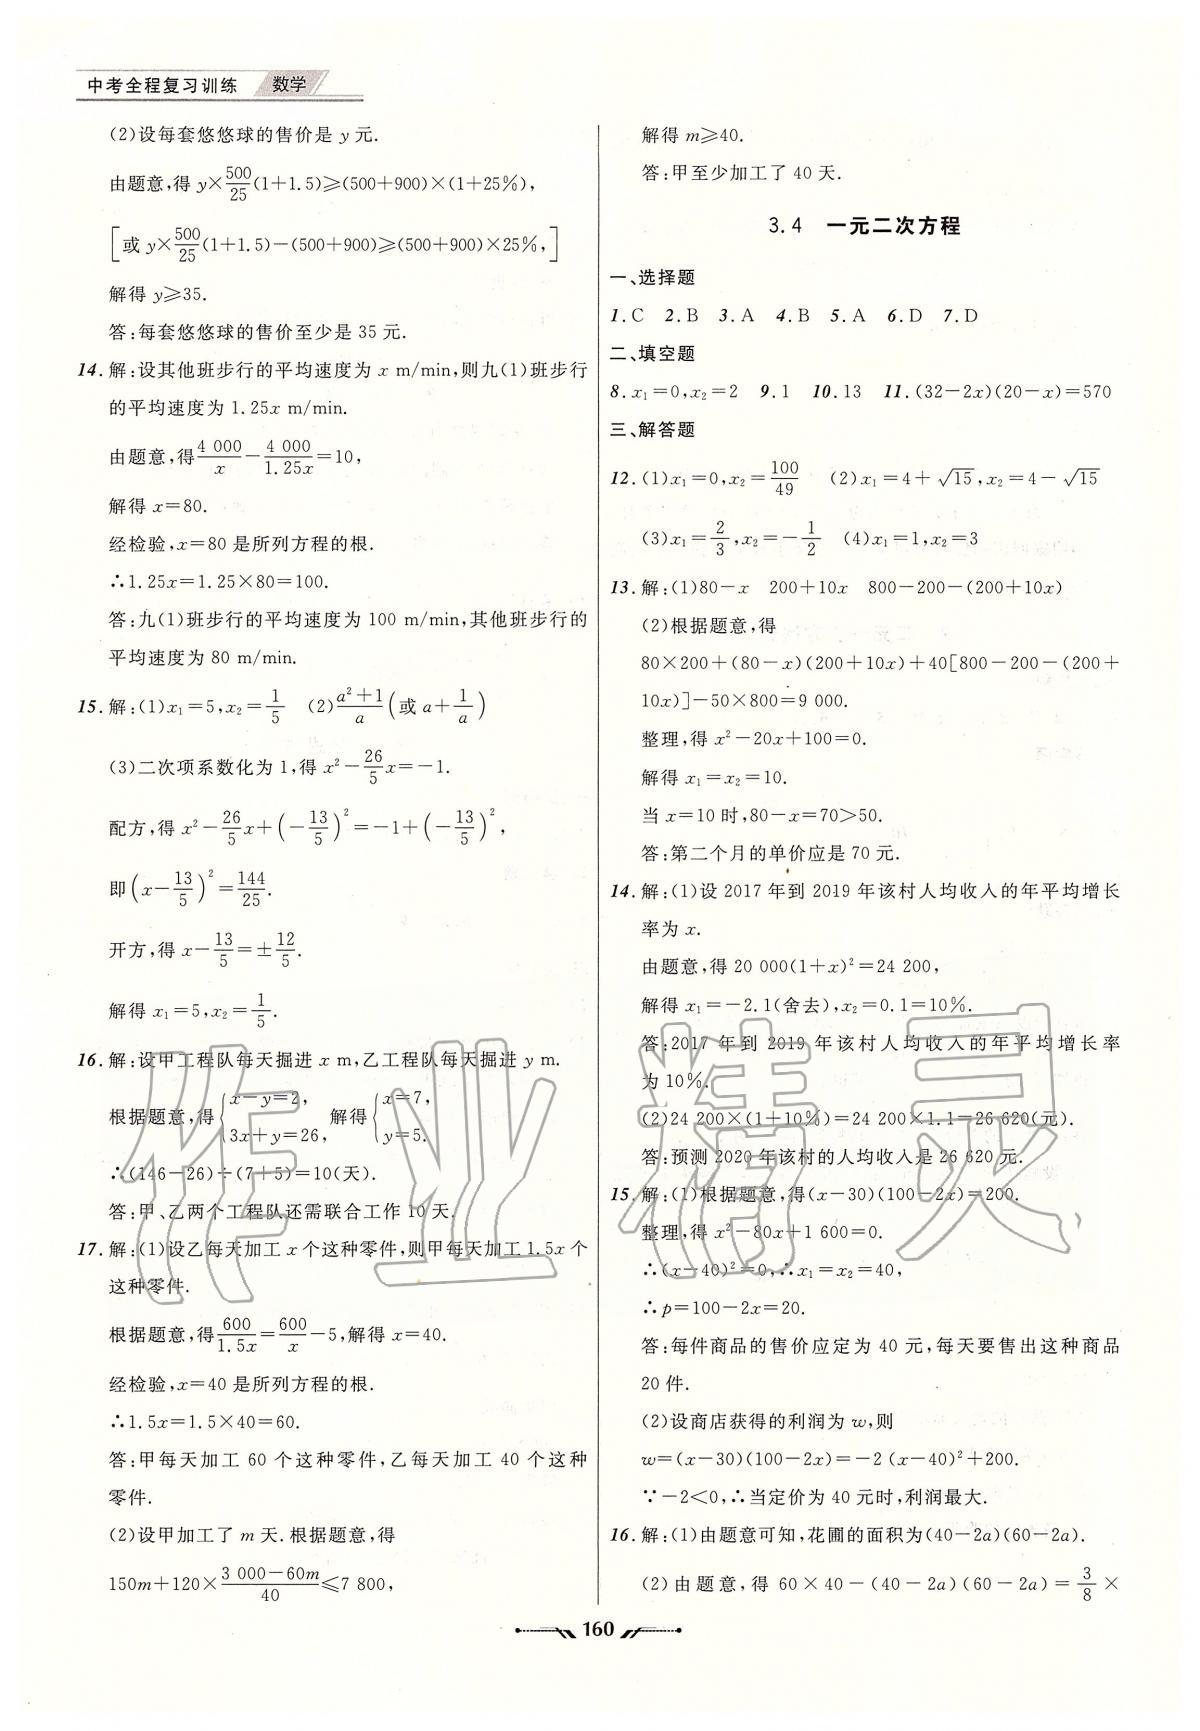 中考全程复习训练 数学
(2)设每套悠悠球的售价是 y 元.
由题意,得 y×500/25(1+1.5)≥(500+900)×(1+25%),
[或 y×500/25(1+1.5)-(500+900)≥(500+900)×25%,]
解得 y≥35.
答:每套悠悠球的售价至少是 35 元.
14.解:设其他班步行的平均速度为 x m/min,则九(1)班步行
的平均速度为 1.25x m/min.
由题意,得 4 000/x - 4 000/1.25x =10,
解得 x=80.
经检验,x=80 是所列方程的根.
∴1.25x=1.25×80=100.
答:九(1)班步行的平均速度为 100 m/min,其他班步行的
平均速度为 80 m/min.
15.解:(1)x₁=5,x₂=1/5 (2)(a²+1)/a(或 a+1/a)
(3)二次项系数化为 1,得 x²-26/5x=-1.
配方,得 x²-26/5x+(-13/5)²=-1+(-13/5)²,
即(x-13/5)²=144/25.
开方,得 x-13/5=±12/5.
解得 x₁=5,x₂=1/5.
16.解:设甲工程队每天掘进 x m,乙工程队每天掘进 y m.
根据题意,得{x-y=2, 3x+y=26, 解得{x=7, y=5.
∴(146-26)÷(7+5)=10(天).
答:甲、乙两个工程队还需联合工作 10 天.
17.解:(1)设乙每天加工 x 个这种零件,则甲每天加工 1.5x 个
这种零件.
根据题意,得 600/1.5x=600/x-5,解得 x=40.
经检验,x=40 是所列方程的根.
∴1.5x=1.5×40=60.
答:甲每天加工 60 个这种零件,乙每天加工 40 个这种
零件.
(2)设甲加工了 m 天.根据题意,得
150m+120×(3 000-60m)/40≤7 800,
解得 m≥40.
答:甲至少加工了 40 天.
3.4 一元二次方程
一、选择题
1.C 2.B 3.A 4.B 5.A 6.D 7.D
二、填空题
8.x₁=0,x₂=2 9.1 10.13 11.(32-2x)(20-x)=570
三、解答题
12.(1)x₁=0,x₂=100/49 (2)x₁=4+√15,x₂=4-√15
(3)x₁=2/3,x₂=-1/2 (4)x₁=1,x₂=3
13.解:(1)80-x 200+10x 800-200-(200+10x)
(2)根据题意,得
80×200+(80-x)(200+10x)+40[800-200-(200+
10x)]-50×800=9 000.
整理,得 x²-20x+100=0.
解得 x₁=x₂=10.
当 x=10 时,80-x=70>50.
答:第二个月的单价应是 70 元.
14.解:(1)设 2017 年到 2019 年该村人均收入的年平均增长
率为 x.
由题意,得 20 000(1+x)²=24 200,
解得 x₁=-2.1(舍去),x₂=0.1=10%.
答:2017 年到 2019 年该村人均收入的年平均增长率
为 10%.
(2)24 200×(1+10%)=24 200×1.1=26 620(元).
答:预测 2020 年该村的人均收入是 26 620 元.
15.解:(1)根据题意,得(x-30)(100-2x)=200.
整理,得 x²-80x+1 600=0.
∴(x-40)²=0,∴x₁=x₂=40,
∴p=100-2x=20.
答:每件商品的售价应定为 40 元,每天要售出这种商品
20 件.
(2)设商店获得的利润为 w,则
w=(x-30)(100-2x)=-2(x-40)²+200.
∵-2<0,∴当定价为 40 元时,利润最大.
16.解:(1)由题意可知,花圃的面积为(40-2a)(60-2a).
(2)由题意,得 60×40-(40-2a)(60-2a)=3/8×
160
作业精灵